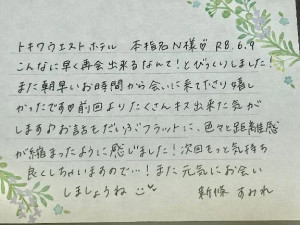 トキワウエストホテル 本指名N様♡ R8.6.9
こんなに早く再会出来るなんて!とびっくりしました!
また朝早いお時間から会いに来て下さり嬉し
かったです♡前回よりたくさんキス出来た気が
します♪お話もだいぶフラットに、色々と距離感
が縮まったように感じました!次回もっと気持ち
良くしちゃいますので…!また元気にお会い
しましょうね
新條 すみれ